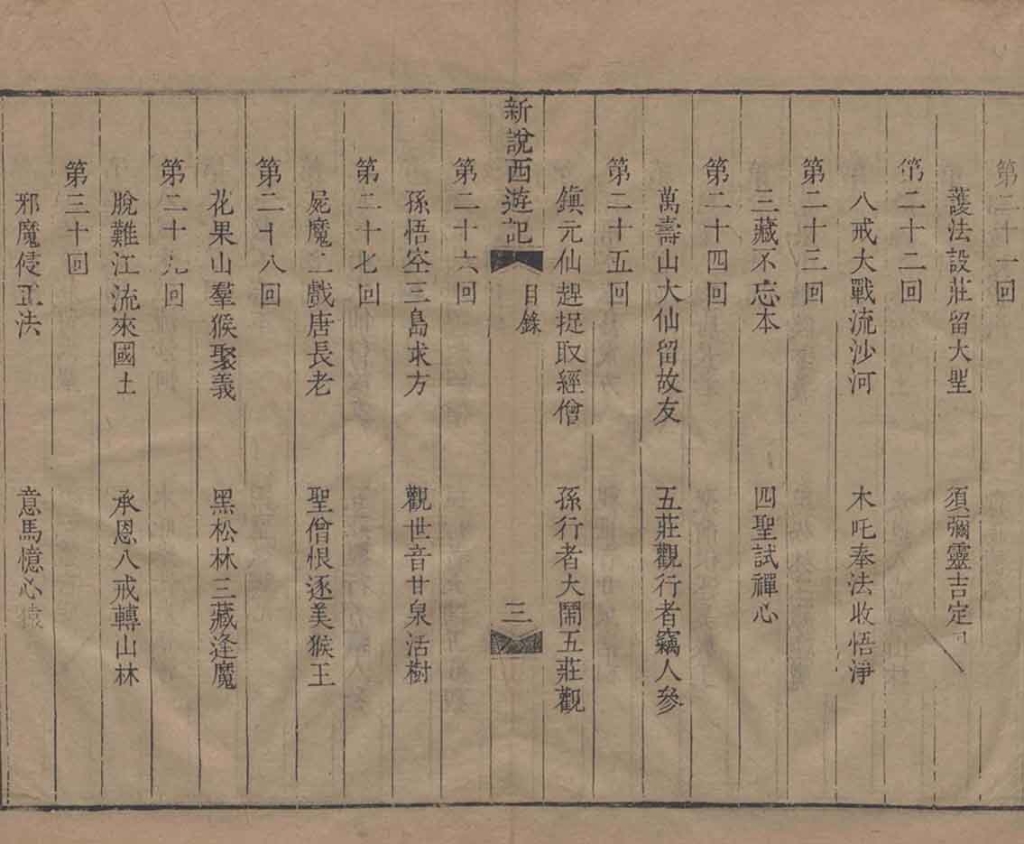 第二十一回
護法設莊留大聖　須彌靈吉定
第二十二回
八戒大戰流沙河　木吒奉法收悟淨
第二十三回
三藏不忘本　四聖試禪心
第二十四回
萬壽山大仙留故友　五莊觀行者竊人參
第二十五回
鎮元仙趕捉取經僧　孫行者大鬧五莊觀
新說西遊記　目錄　三
第二十六回
孫悟空三島求方　觀世音甘泉活樹
第二十七回
屍魔三戲唐長老　聖僧恨逐美猴王
第二十八回
花果山羣猴聚義　黑松林三藏逢魔
第二十九回
脫難江流來國土　承恩八戒轉山林
第三十回
邪魔侵正法　意馬憶心猿